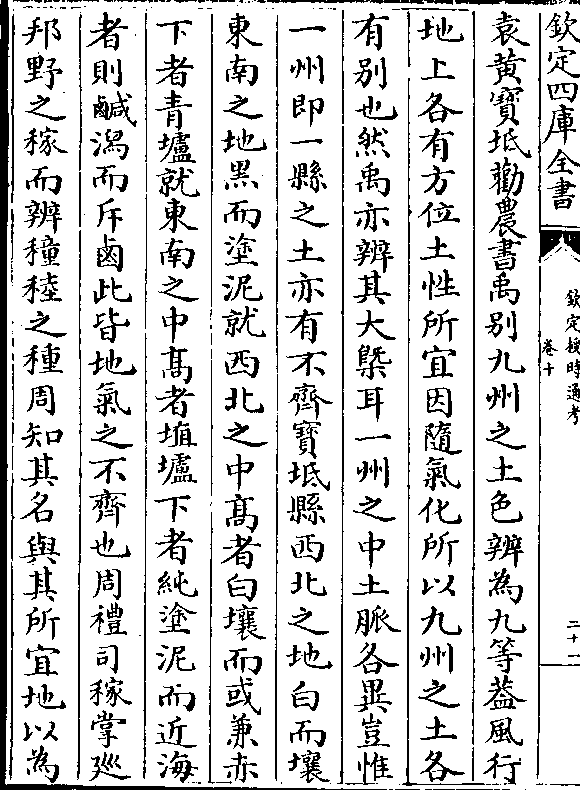 欽定四庫全書
欽定授時通考
卷十
二十一
袁黃寳坻勸農書禹别九州之土色辨為九等葢風行
地上各有方位土性所宜因隨氣化所以九州之土各
有别也然禹亦辨其大槩耳一州之中土脈各異豈惟
一州即一縣之土亦有不齊寳坻縣西北之地白而壤
東南之地黒而塗泥就西北之中髙者白壤而或兼赤
下者青壚就東南之中髙者埴壚下者純塗泥而近海
者則鹹潟而斥鹵此皆地氣之不齊也周禮司稼掌廵
邦野之稼而辨穜稑之種周知其名與其所宜地以為